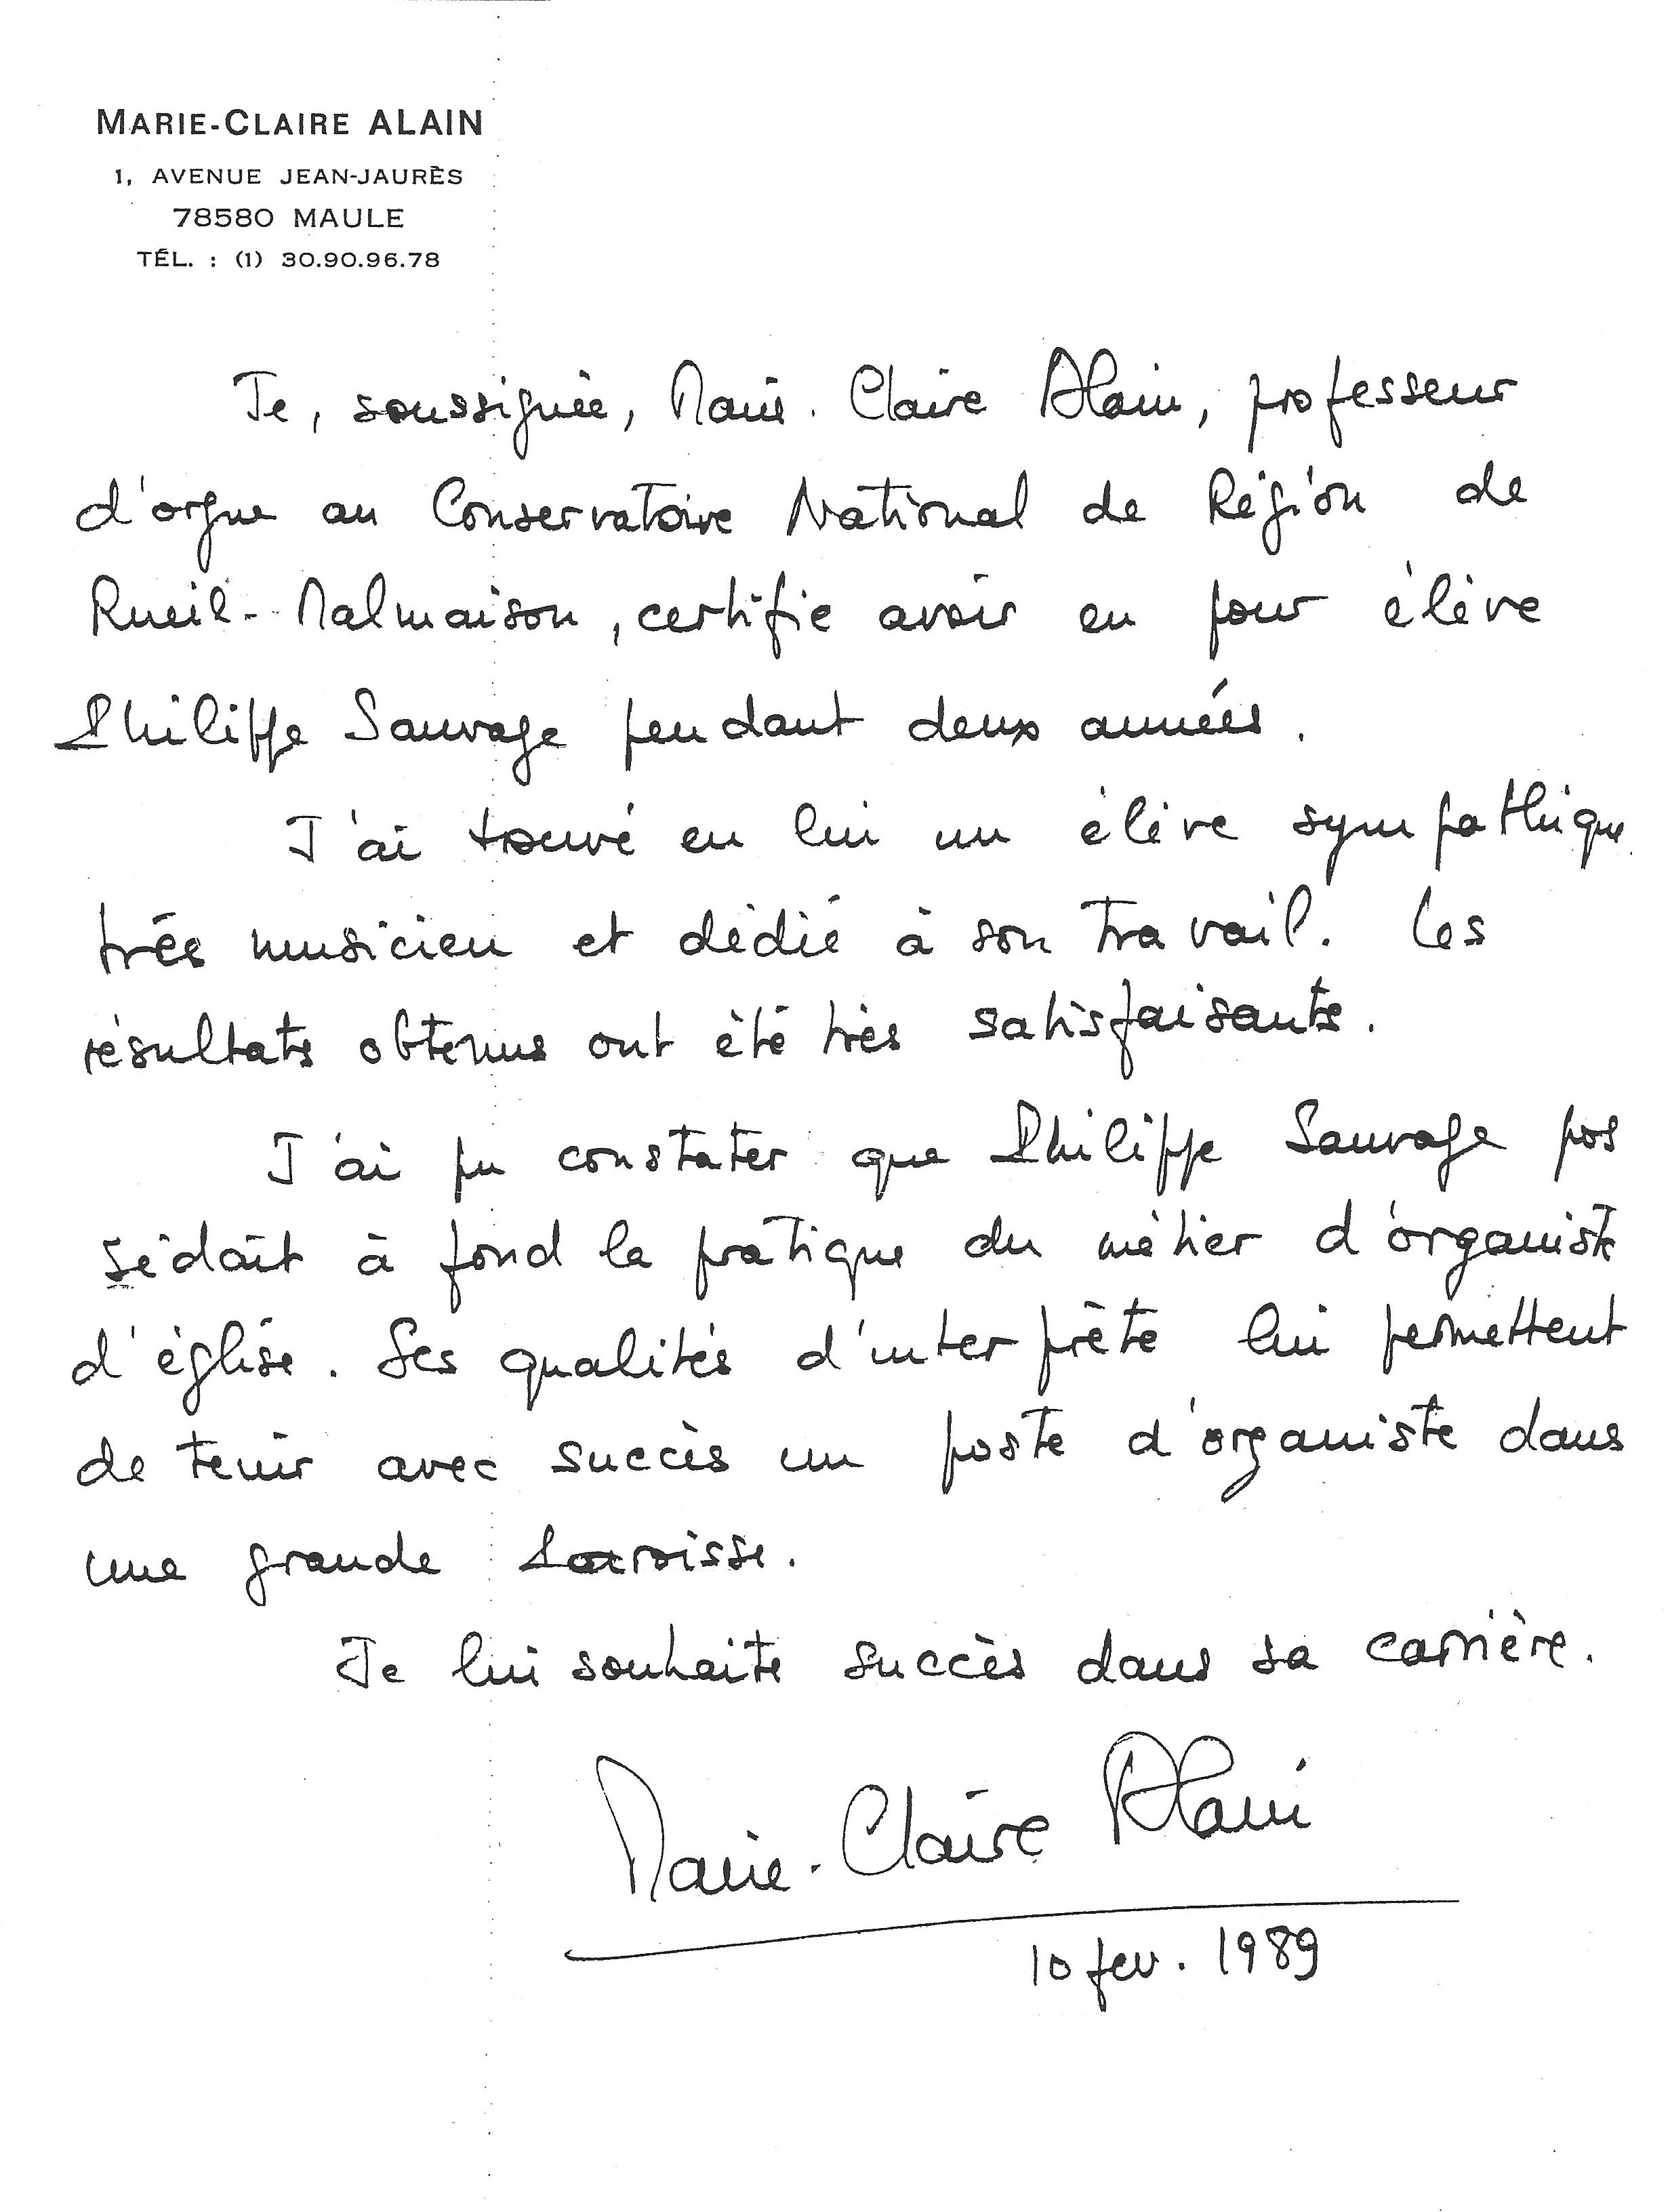 MARIE-CLAIRE ALAIN
1, AVENUE JEAN-JAURÈS
78580 MAULE
TÉL. : (1) 30.90.96.78
Je, soussignée, Marie-Claire Alain, professeur
d'orgue au Conservatoire National de Région de
Rueil-Malmaison, certifie avoir eu pour élève
Philippe Sauvage pendant deux années.
J'ai trouvé en lui un élève sympathique
très musicien et dédié à son travail. Les
résultats obtenus ont été très satisfaisants.
J'ai pu constater que Philippe Sauvage pos
sédait à fond la pratique du métier d'organiste
d'église. Ses qualités d'interprète lui permettent
de tenir avec succès un poste d'organiste dans
une grande Paroisse.
Je lui souhaite succès dans sa carrière.
Marie-Claire Alain
10 fev. 1989